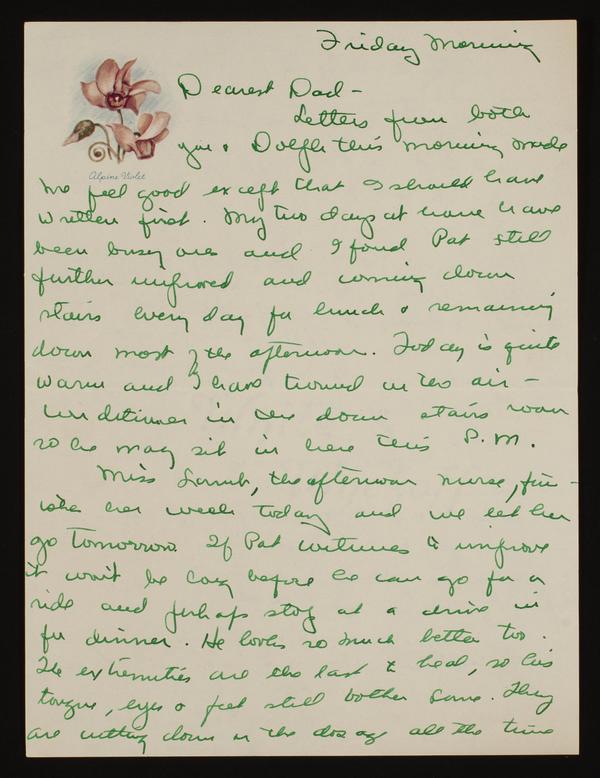 Friday Morning
Dearest Dad -
Letters from both
you & Dolph this morning made
Alpine Violet
me feel good except that I should have
written first. My two days at home have
been busy ones and I found Pat still
further improved and coming down
stairs every day for lunch & remaining
down most of the afternoon. Today is quite
warm and I have turned on the air -
conditioner in the down stairs room
so he may sit in here this P.M.
Miss Lamb, the afternoon nurse, fin-
ishes her week today and we let her
go tomorrow. If Pat continues to improve
it won't be long before he can go for a
ride and perhaps stop at a drive in
for dinner. He looks so much better too.
The extremities are the last to heal, so his
tongue, eyes & feet still bother some. They
are cutting down on the dosage all the time